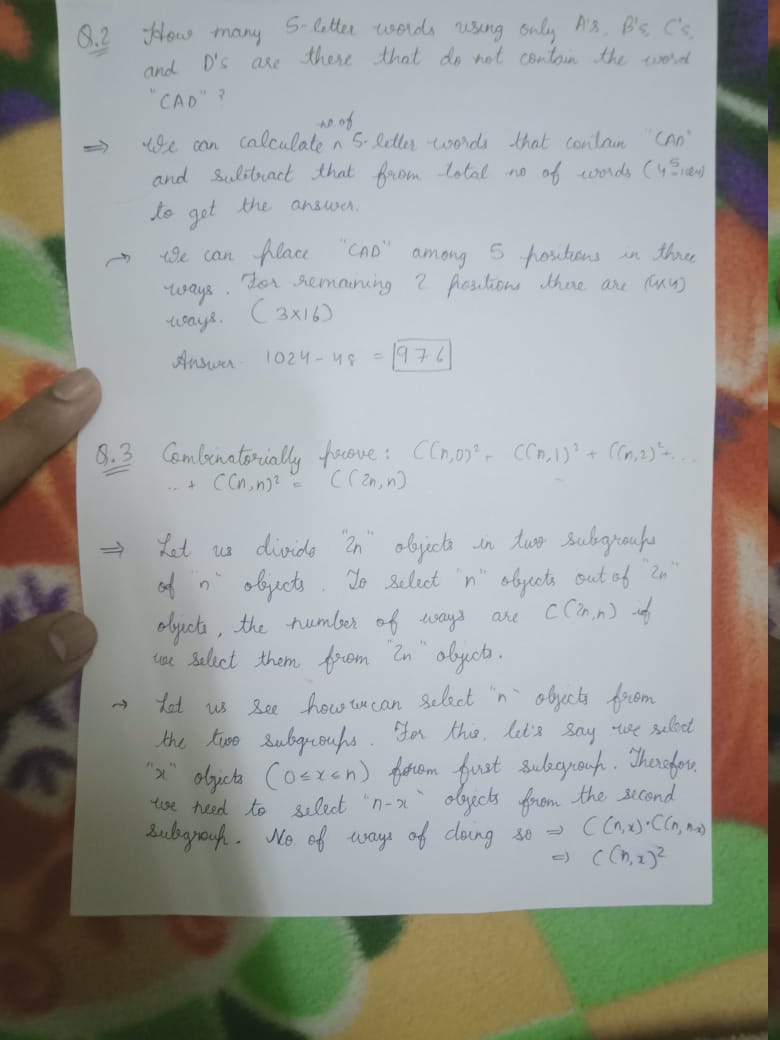 Q.2 How many 5-letter words using only A's, B's, C's,
and D's are there that do not contain the word
"CAD" ?
no. of
⇒ We can calculate ^ 5-letter words that contain "CAD"
and subtract that from total no of words (4⁵=1024)
to get the answer.
→ We can place "CAD" among 5 positions in three
ways. For remaining 2 positions there are (4x4)
ways. (3x16)
Answer 1024-48 = 976
Q.3 Combinatorially prove : C(n,0)² + C(n,1)² + C(n,2)² + ...
.. + C(n,n)² = C(2n,n)
⇒ Let us divide "2n" objects in two subgroups
of "n" objects. To select "n" objects out of "2n"
objects, the number of ways are C(2n,n) if
we select them from "2n" objects.
→ Let us see how we can select "n" objects from
the two subgroups. For this, let's say we select
"x" objects (0≤x≤n) from first subgroup. Therefore,
we need to select "n-x" objects from the second
subgroup. No of ways of doing so ⇒ C(n,x)·C(n,n-x)
⇒ C(n,x)²